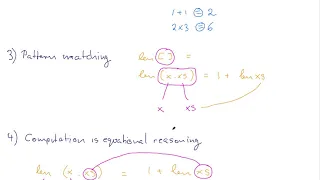 1+1 = 2
2x3 = 6
3) Pattern matching. len [] =
len (x:xs) = 1 + len xs
x xs
4) Computation is equational reasoning
len (x: xs) = 1 + len xs